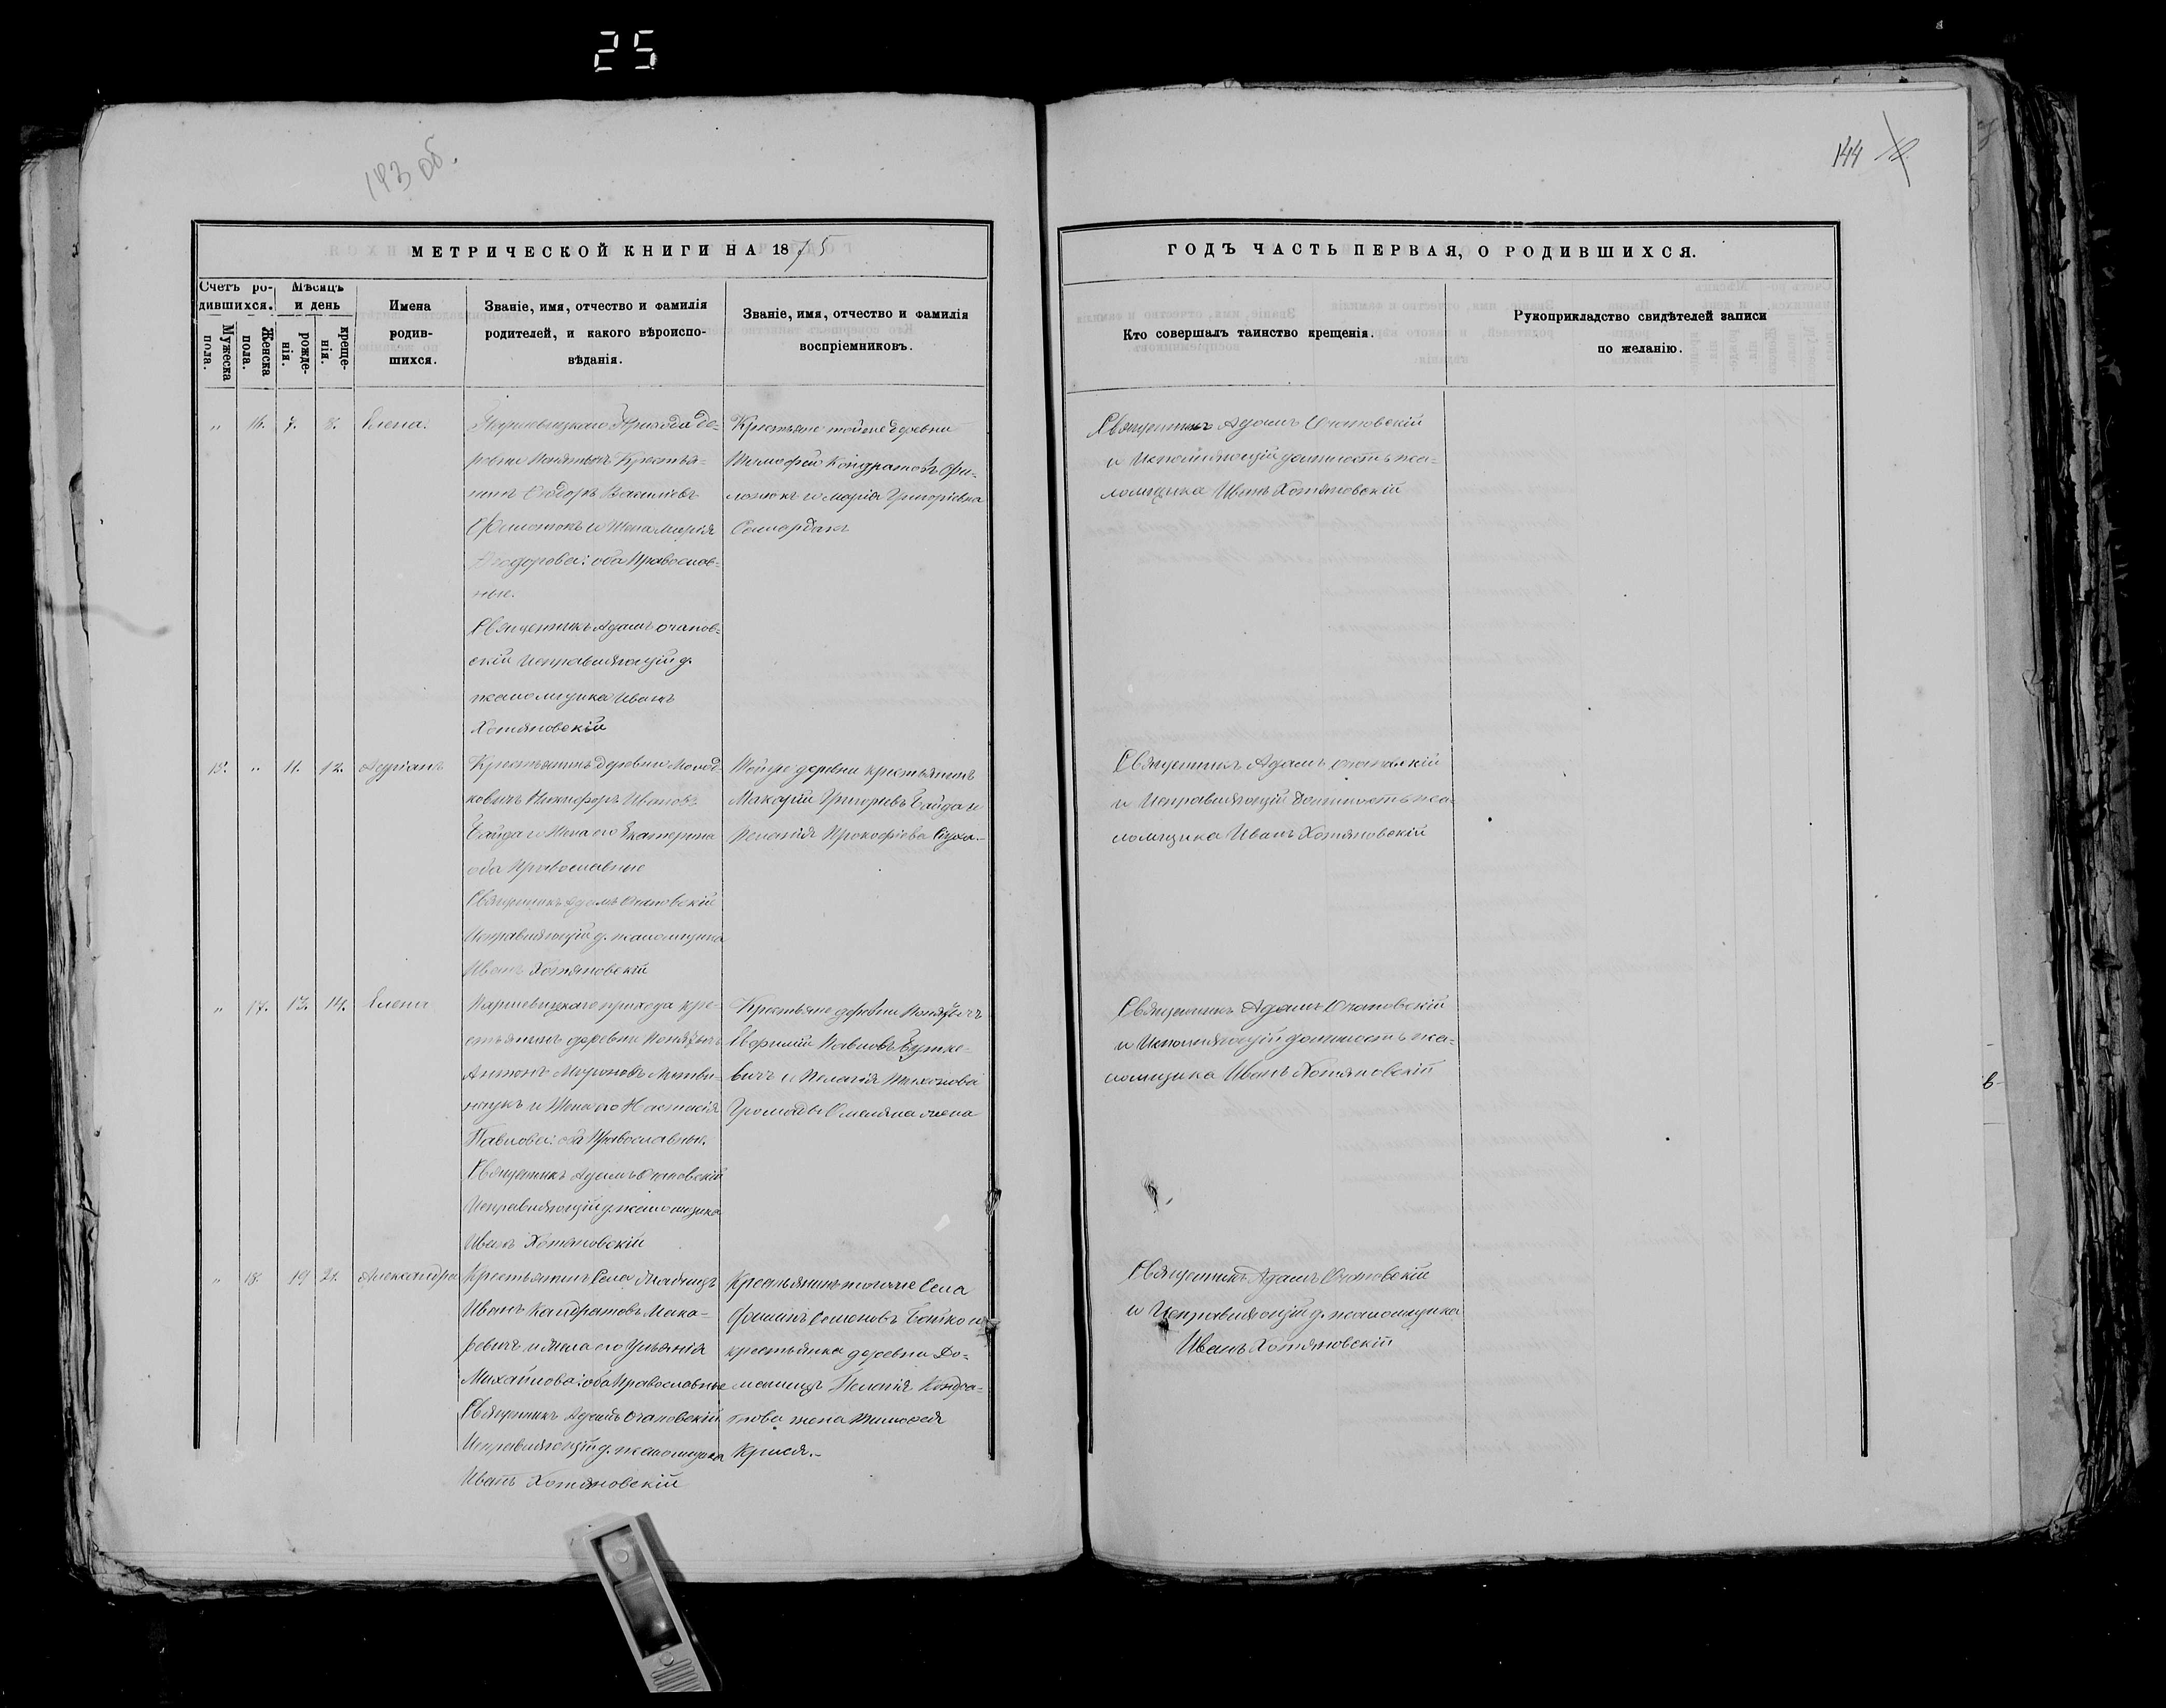 25
143 об.
144
МЕТРИЧЕСКОЙ КНИГИ НА 1875
ГОДЪ ЧАСТЬ ПЕРВАЯ, О РОДИВШИХСЯ.
Счетъ ро-
дившихся.
Мужеска
пола.
Женска
пола.
Мѣсяцъ
и день
рожде-
нія.
креще-
нія.
Имена
родив-
шихся.
Званіе, имя, отчество и фамилія
родителей, и какого вѣроиспо-
вѣданія.
Званіе, имя, отчество и фамилія
воспріемниковъ.
Кто совершалъ таинство крещенія.
Рукоприкладство свидѣтелей записи
по желанію.
„ 16. 7. 8. Елена.
прихода де-
ревни Крестья-
нинъ Ѳеодоръ Василіевъ
и Жена Марія
Ѳеодорова: оба Православ-
ные.
Священникъ Адамъ Очаповскій
Исправляющій д.
псаломщика Иванъ
Хотяновскій
Крестьяне тойже деревни
Тимофей Кондратовъ Фи-
лонюкъ и Марія Григоріева
Священникъ Адамъ Очаповскій
и Исполняющій должность пса-
ломщика Иванъ Хотяновскій
15. „ 11. 12. Адріанъ
Крестьянинъ деревни
Никифоръ Ивановъ
Байда и Жена его Екатерина
оба Православные
Священникъ Адамъ Очаповскій
Исправляющій д. псаломщика
Иванъ Хотяновскій
Тойже деревни крестьянинъ
Макарій Григоріевъ Байда и
Пелагія Прокофіева
Священникъ Адамъ Очаповскій
и Исправляющій должность пса-
ломщика Иванъ Хотяновскій
„ 17. 13. 14. Елена
прихода кре-
стьянинъ деревни
Антонъ Мироновъ Литви-
нчукъ и Жена его Настасія
Павлова: оба Православные.
Священникъ Адамъ Очаповскій
Исправляющій д. псаломщика
Иванъ Хотяновскій
Крестьяне деревни
Евфимій Павловъ Бутке-
вичъ и Пелагія Тихонова
жена
Священникъ Адамъ Очаповскій
и Исполняющій должность пса-
ломщика Иванъ Хотяновскій
„ 18. 19 21. Александра
Крестьянинъ Села
Иванъ Кондратовъ Мака-
ревичъ и Жена его Ульянія
Михайлова: оба Православные
Священникъ Адамъ Очаповскій
Исправляющій д. псаломщика
Иванъ Хотяновскій
Крестьянинъ тогоже Села
Филипъ Семеновъ Бойко и
крестьянка деревни До-
машицъ Пелагія Кондра-
това жена Тимофея
Крися.-
Священникъ Адамъ Очаповскій
и Исправляющій д. псаломщика
Иванъ Хотяновскій